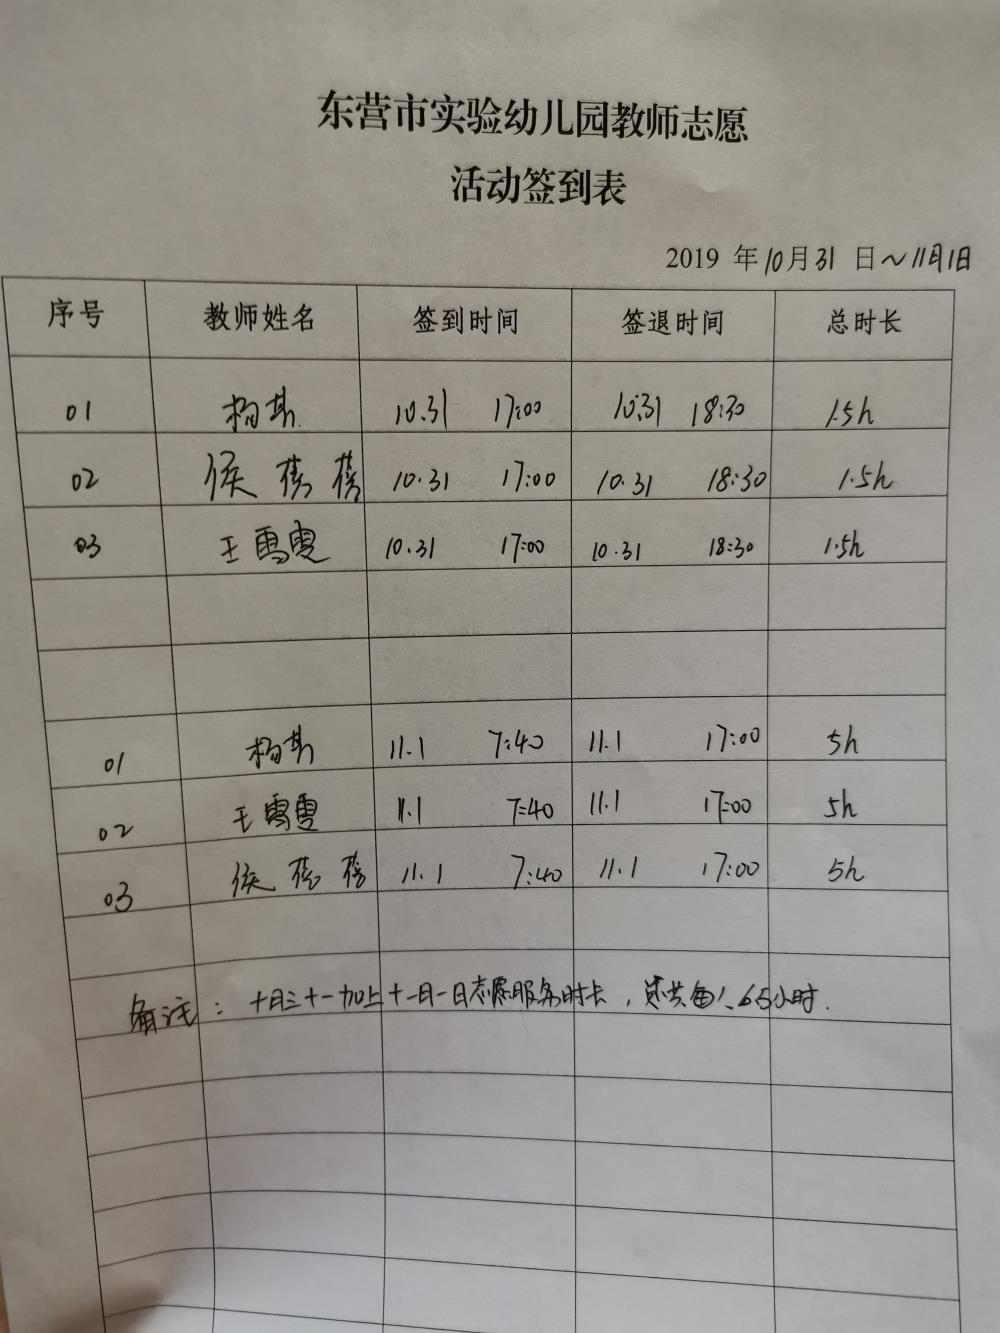 东营市实验幼儿园教师志愿
活动签到表
2019 年10月31 日~11月1日
序号 教师姓名 签到时间 签退时间 总时长
01 杨 10.31 17:00 10.31 18:30 1.5h
02 侯蓓蓓 10.31 17:00 10.31 18:30 1.5h
03 王雪雯 10.31 17:00 10.31 18:30 1.5h
01 杨 11.1 7:40 11.1 17:00 5h
02 王雪雯 11.1 7:40 11.1 17:00 5h
03 侯蓓蓓 11.1 7:40 11.1 17:00 5h
备注：十月三十一加上十一月一日志愿服务时长，总共每人6.5小时.